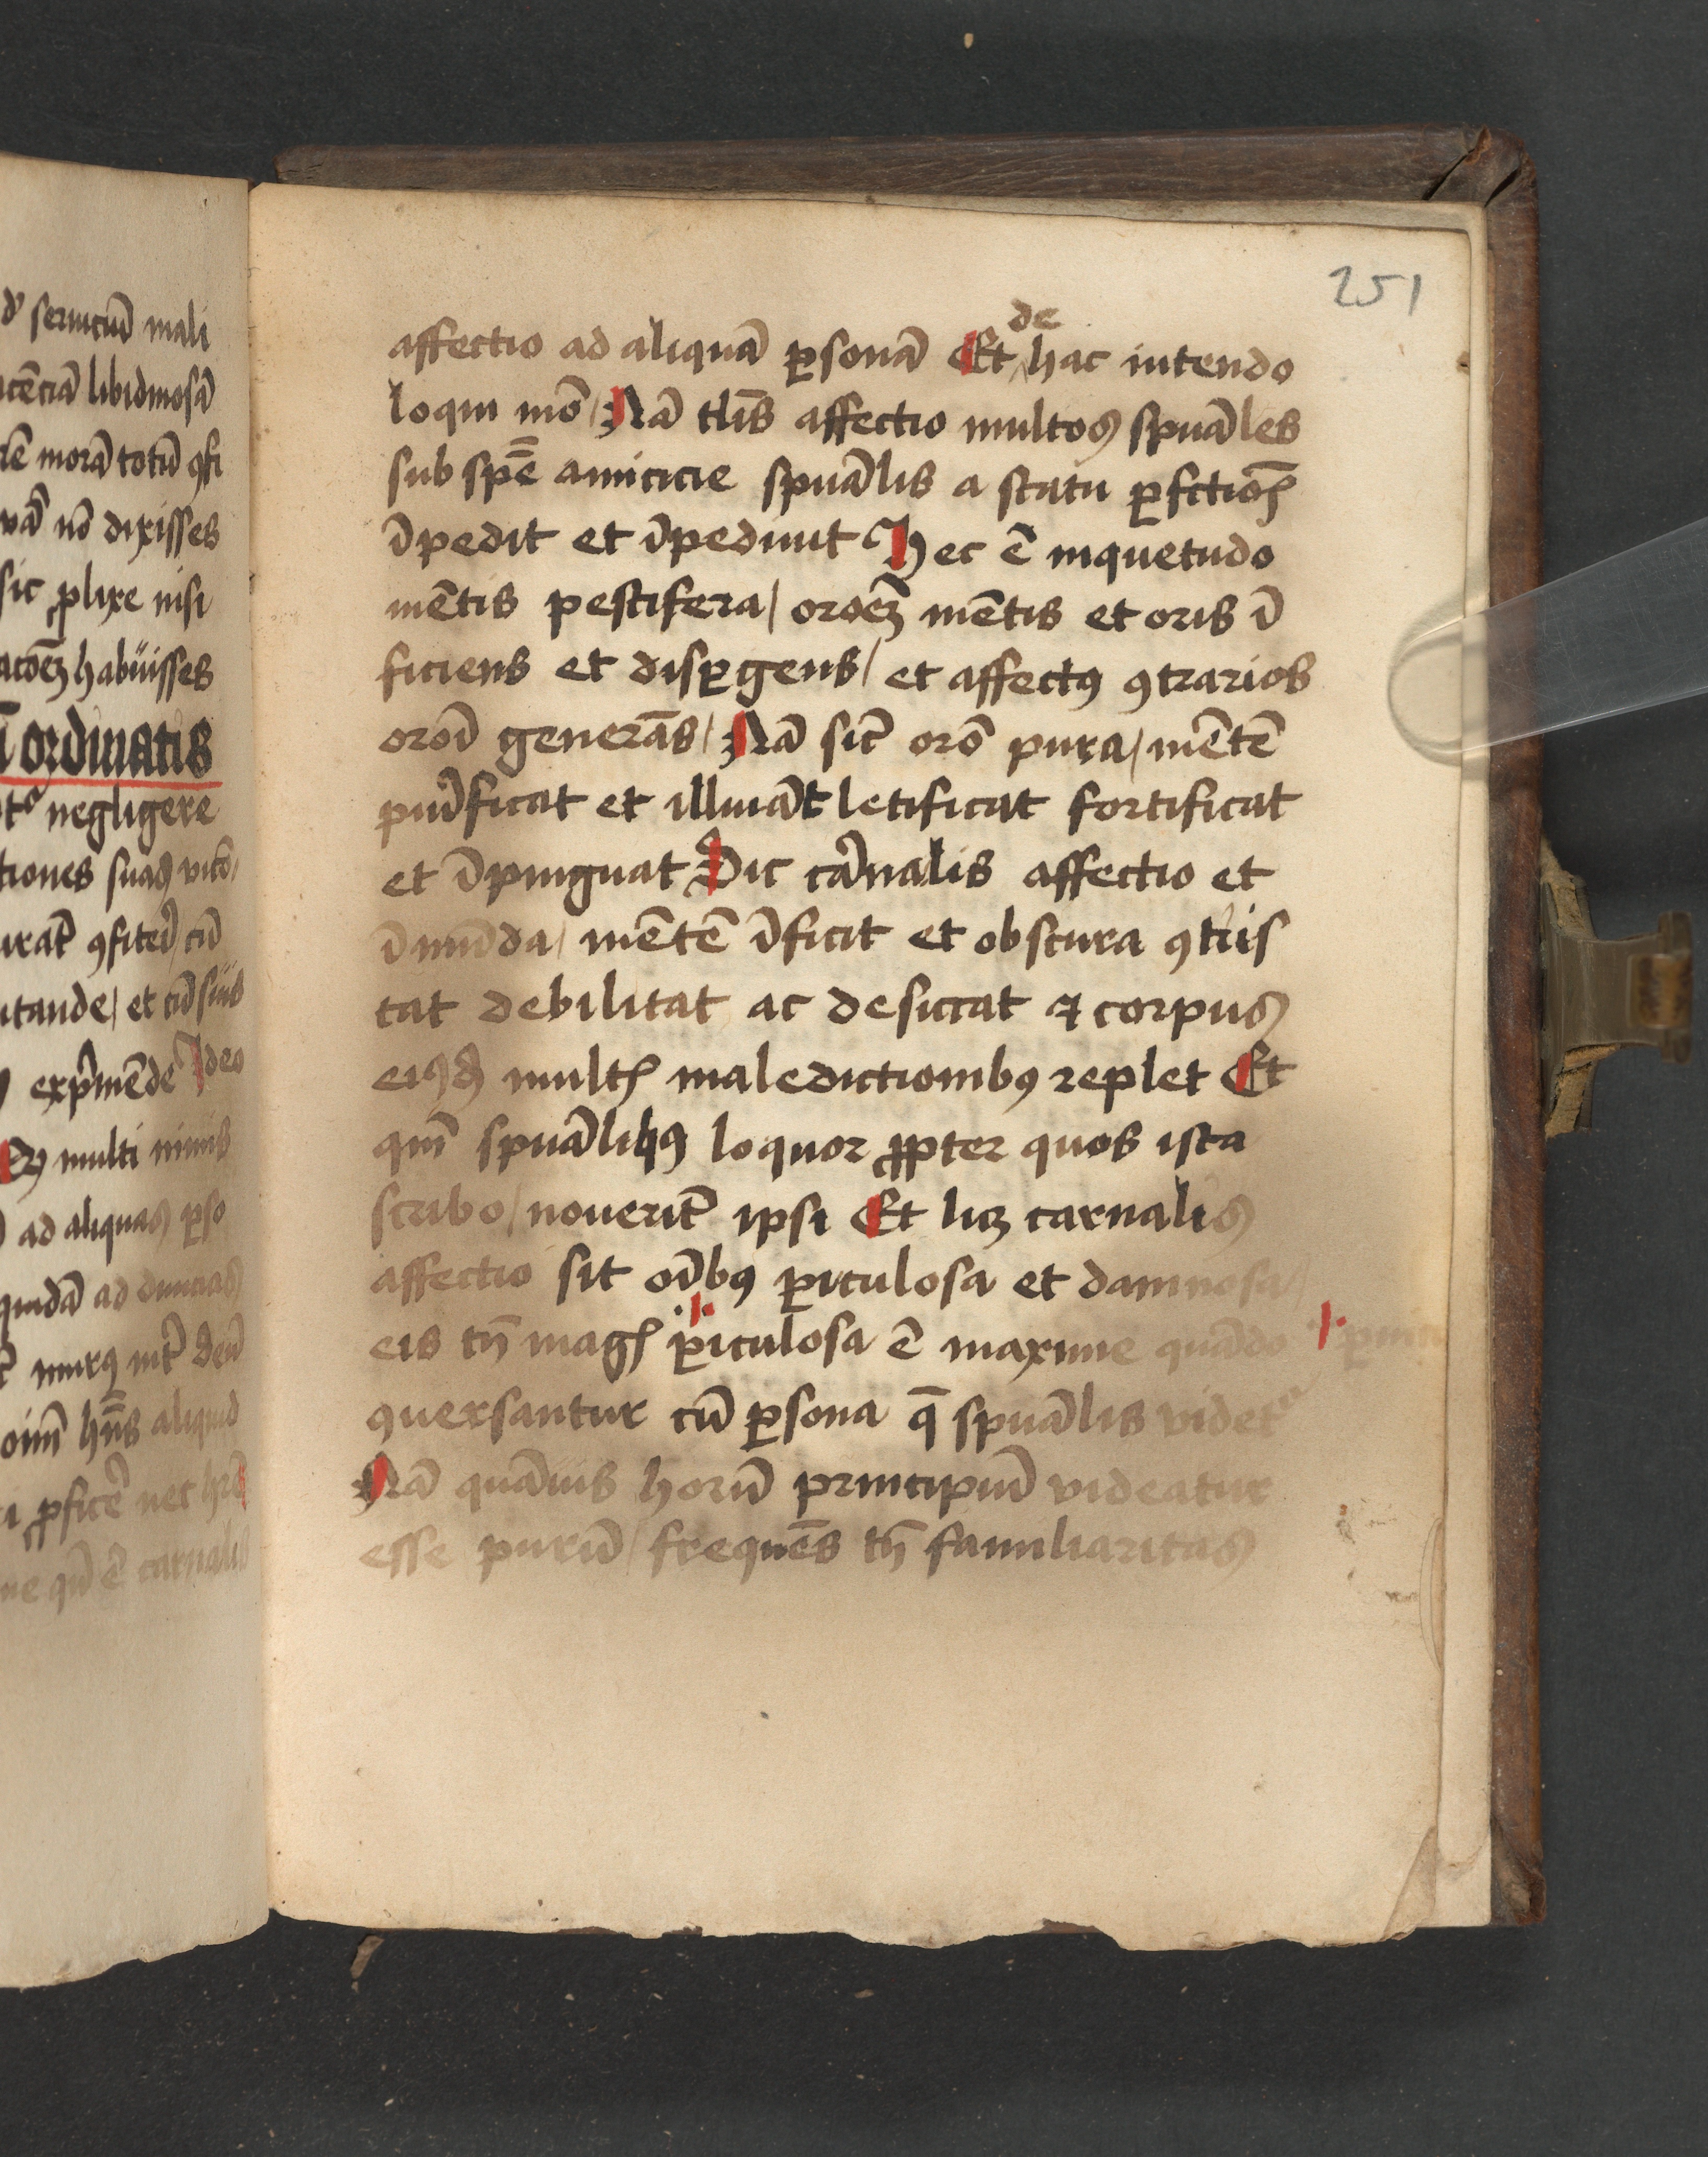 d' seruiciū mali
libidinosā
morā totū ꝯfi
nō dixisses
sic ꝓlixe nisi
habuisses
ordinatis
negligere
tiones suas
ꝯfiteri cū
et cū suis
exp̄mēde Ideo
multi nimis
ad aliquas ꝑso
quidā ad
deū
hn̄s aliquid
ꝓficē nec
carnalis
251
de
affectio ad aliquā ꝑsonā Et hac intendo
loqui mō / Nā tlis̄ affectio multos spuāles
sub spē amicicie spuālis a statu ꝑfctiōis
īpedit et īpediuit Hec ē inquetudo
mētis pestifera / oroēm mētis et oris ī
ficiens et disꝑgens / et affectꝰ ꝯtrarios
oroī generās / Nā sic̄ orō pura / mētē
purificat et illuiāt letificat fortificat
et īpinguat Sic cārnalis affectio et
ī mūda / mētē īficit et obscura ꝯtris
tat debilitat ac desiccat ⁊ corpus
eiꝰdē multis maledictionibꝰ replet Et
qm̄ spuālibꝰ loquor ꝓpter quos ista
scribo / nouerit̄ ipsi Et licꝫ carnalis
affectio sit oībꝰ ꝑiculosa et damnosa /
eis tn̄ magis ꝑiculosa ē maxime quādo
ꝯuersantur cū ꝑsona q̄ spuālis videt᷑
Nā quāuis horū principiū videatur
esse purū / frequēs tn̄ familiaritas